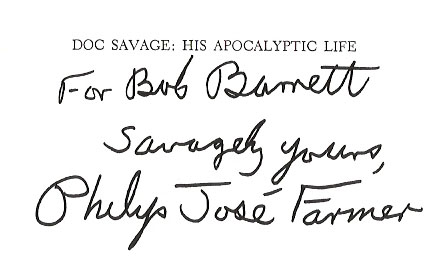 DOC SAVAGE: HIS APOCALYPTIC LIFE
For Bob Barrett
Savagely yours,
Philip José Farmer